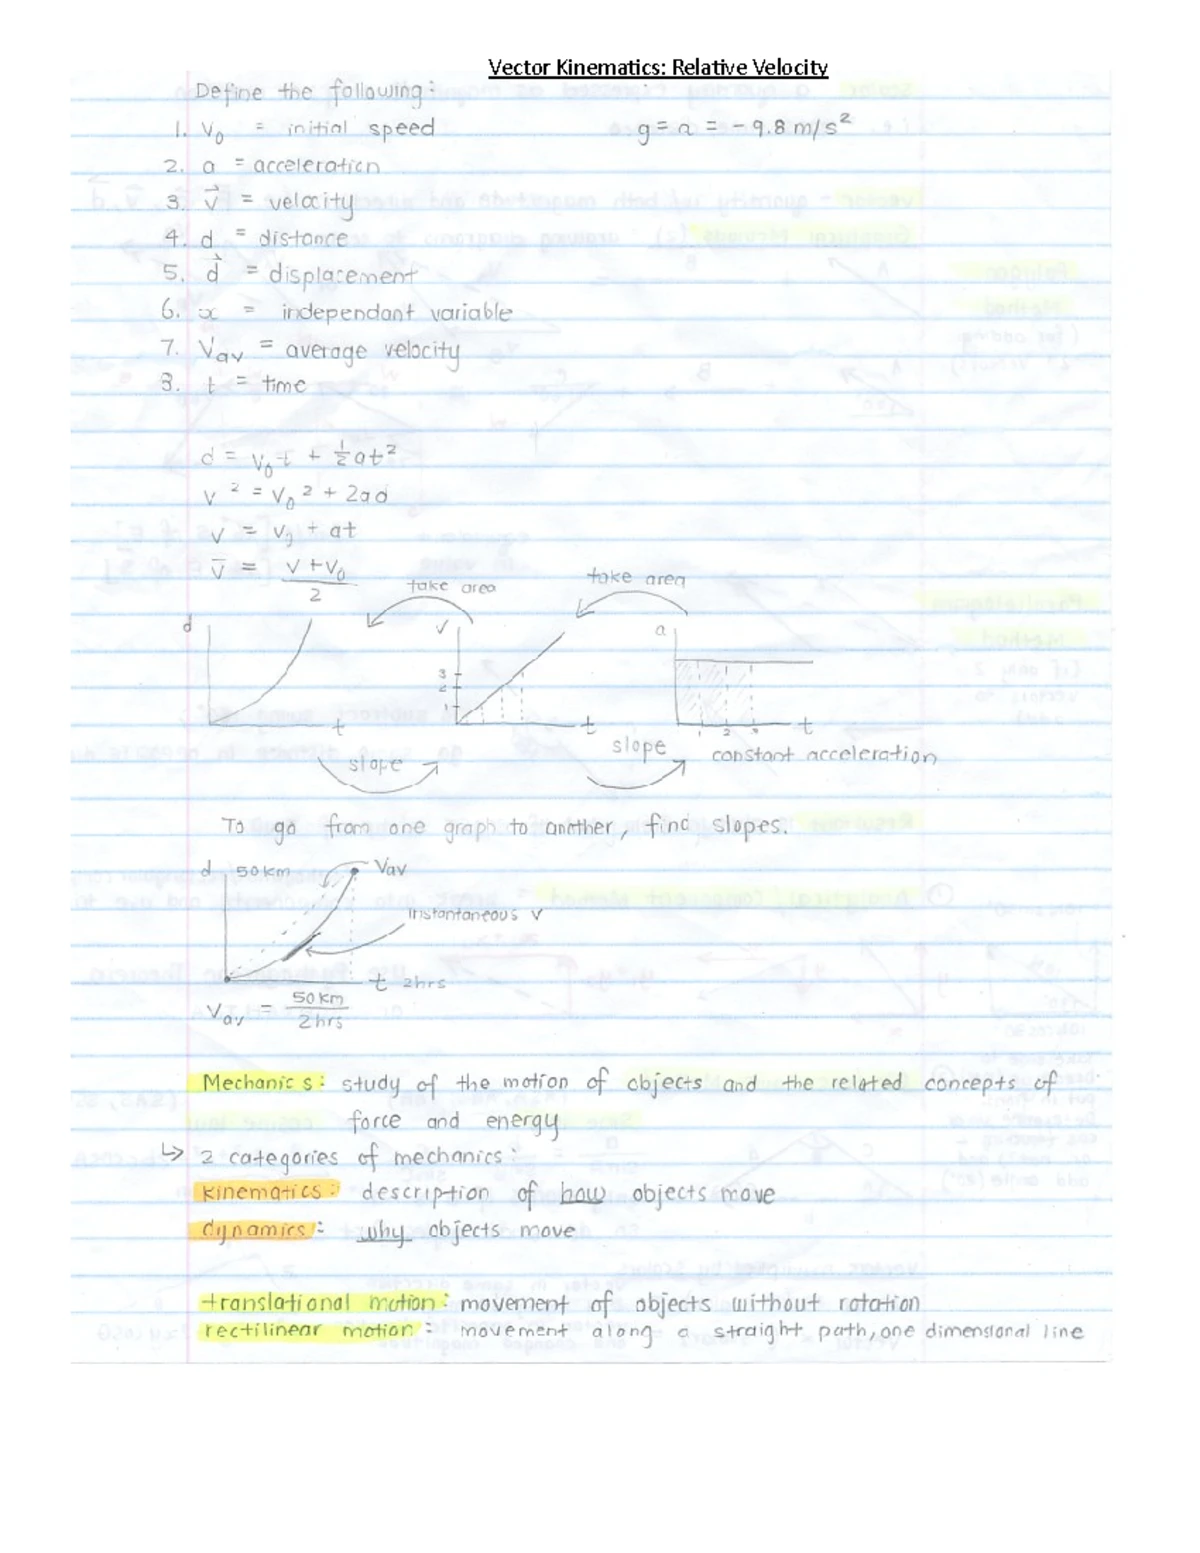 Vector Kinematics: Relative Velocity
Define the following:
1. V₀ = initial speed
g = a = -9.8 m/s²
2. a = acceleration
3. v⃗ = velocity
4. d = distance
5. d⃗ = displacement
6. x = independant variable
7. Vav = average velocity
8. t = time
d = v₀t + ½at²
v² = v₀² + 2ad
v = v₀ + at
v̅ = (v + v₀)/2
take area
take area
d
t
v
3
2
1
t
a
1 2 3
t
slope
slope
constant acceleration
To go from one graph to another, find slopes.
d 50km
Vav
instantaneous v
t 2hrs
Vav = 50km / 2hrs
Mechanics: study of the motion of objects and the related concepts of
force and energy
↳ 2 categories of mechanics:
kinematics: description of how objects move
dynamics: why objects move
translational motion: movement of objects without rotation
rectilinear motion: movement along a straight path, one dimensional line